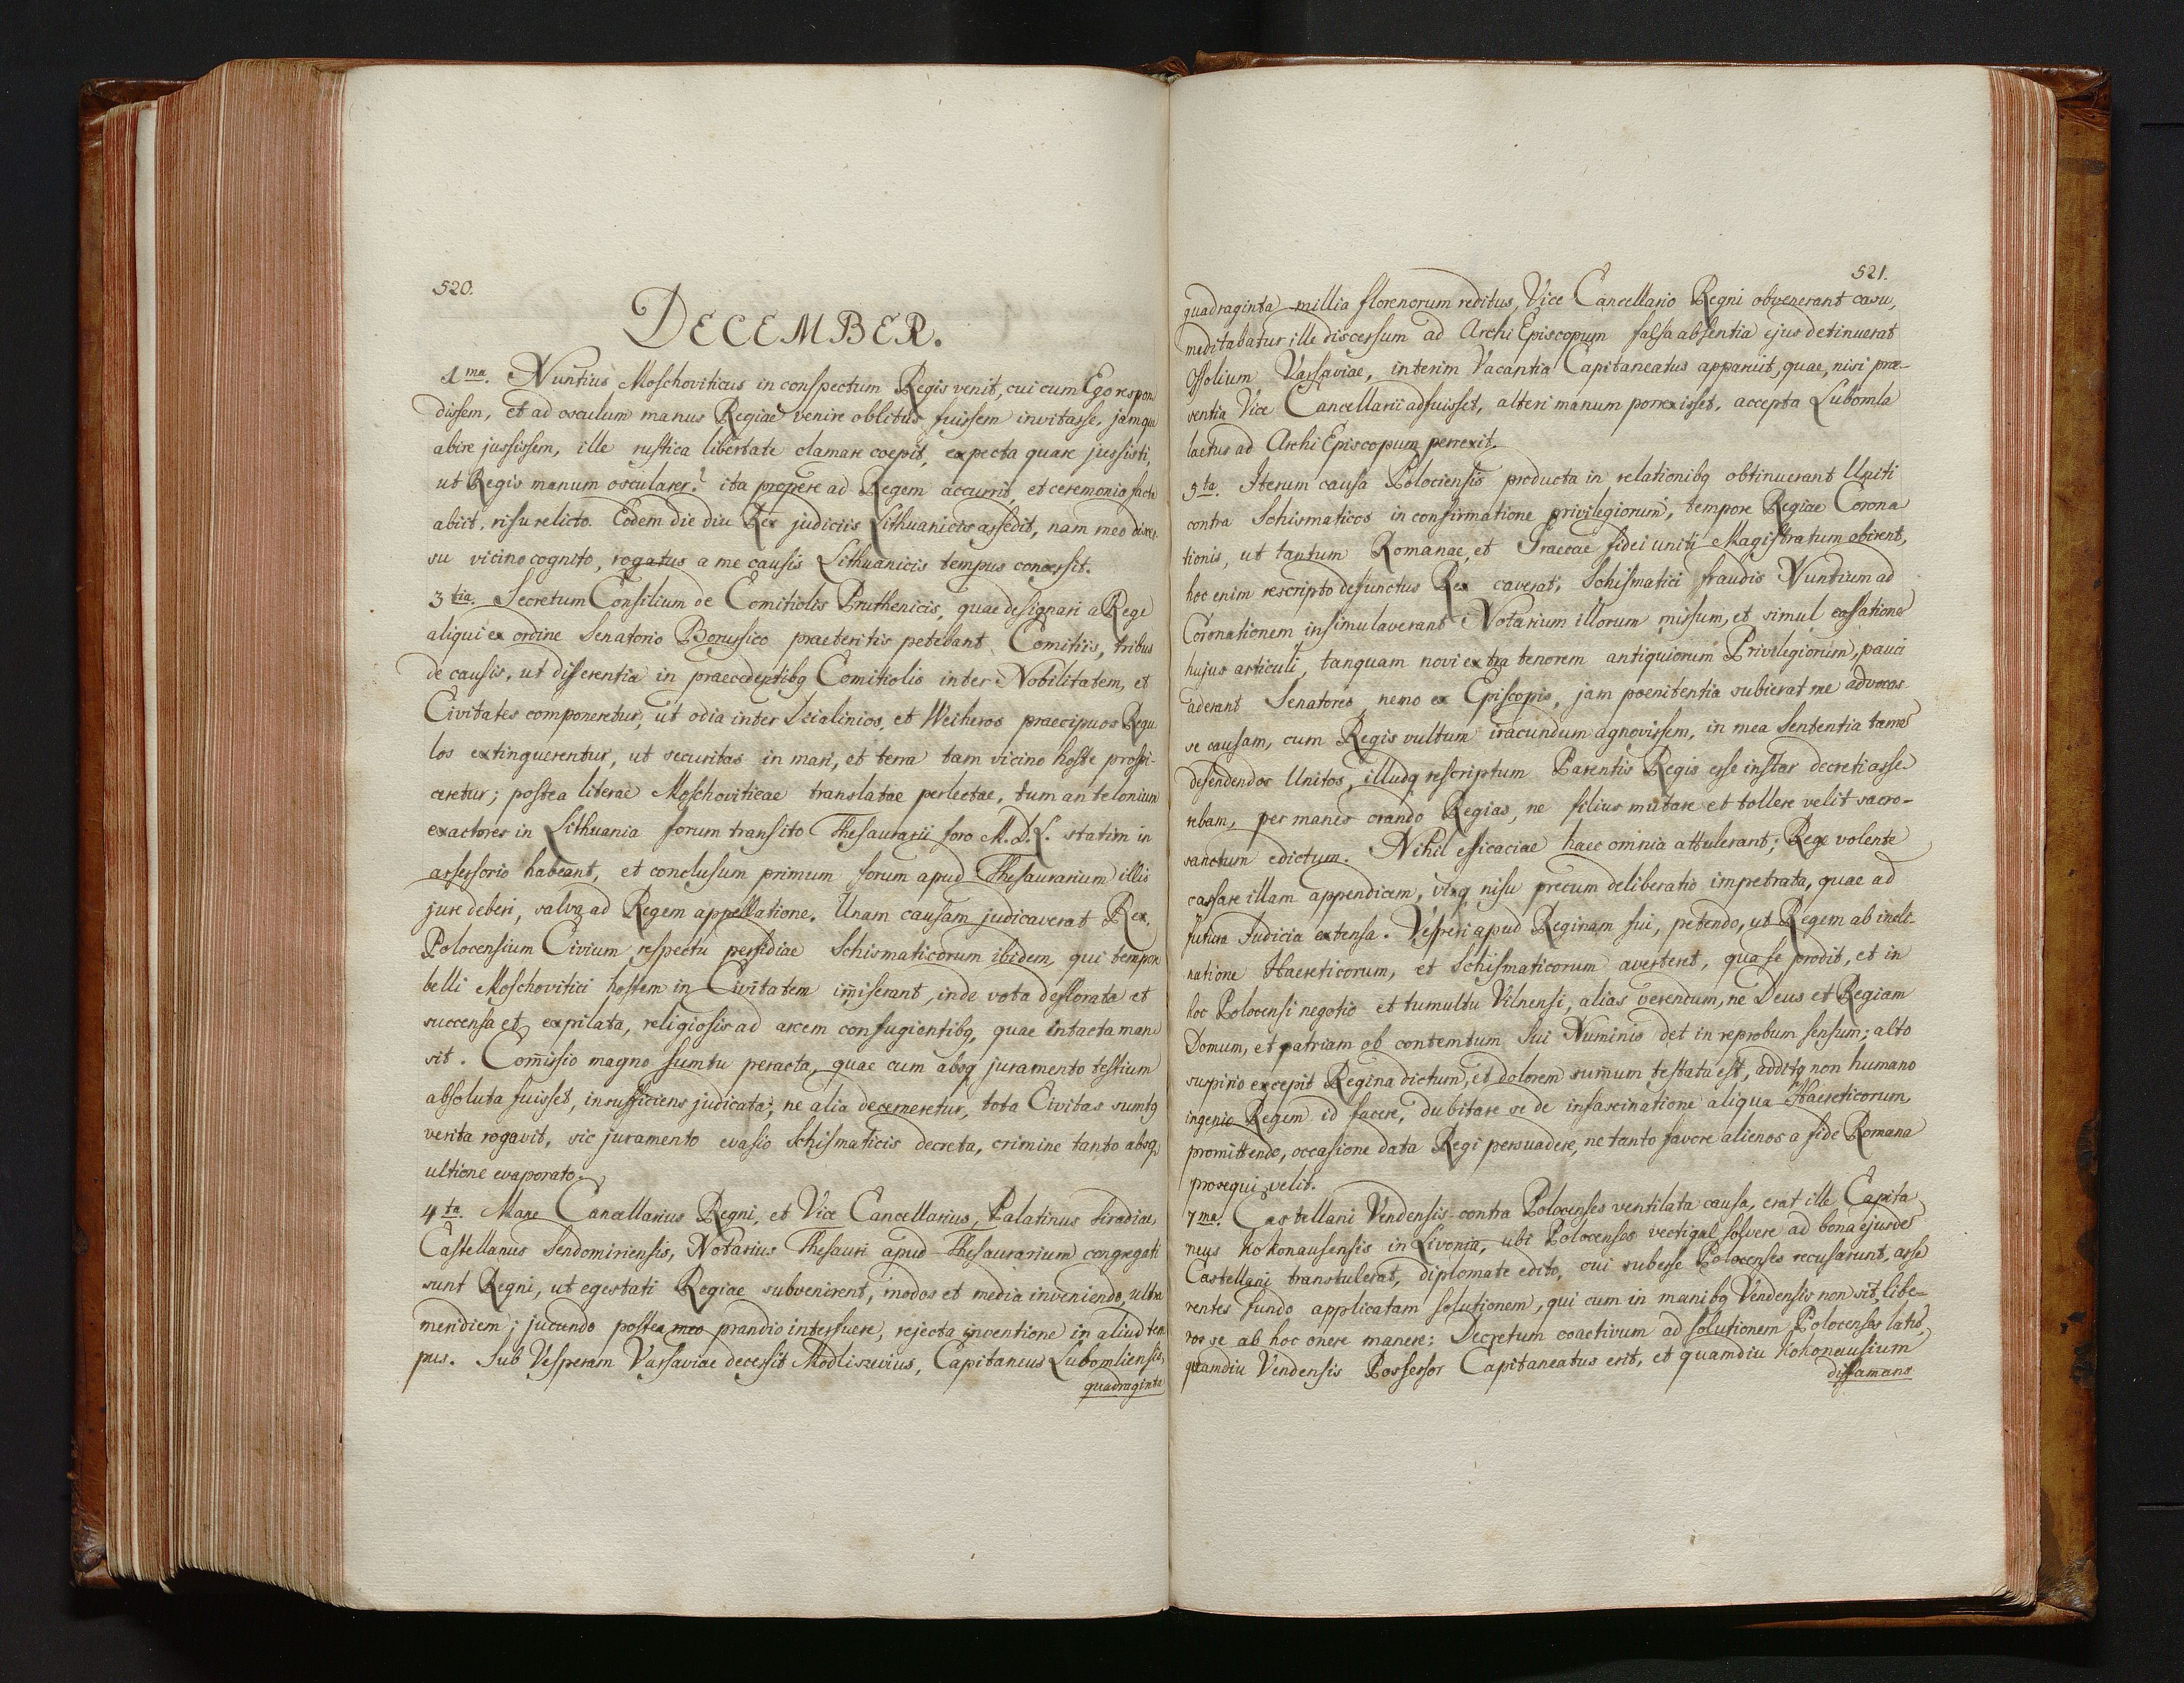 520.
DECEMBER.
1ma. Nuntius Moschoviticus in conspectum Regis venit, cui cum Ego respon
dissem, et ad osculum manus Regiae venire oblitus fuissem invitasse, jamqu
abire jussissem, ille rustica libertate clamare coepit, expecta quare jussisti,
ut Regis manum oscularer? ita propere ad Regem accurrit, et ceremonia facta
abiit, risu relicto. Eodem die diu Rex judiciis Lithuanicis assedit, nam meo disces
su vicino cognito, rogatus a me causis Lithuanicis tempus concessit.
3tia. Secretum Consilium de Comitiolis Pruthenicis, quae designari a Rege
aliqui ex ordine Senatorio Borussico praeteritis petebant Comitiis, tribus
de causis, ut differentia in praecedentibq Comitiolis inter Nobilitatem, et
Civitates componeretur, ut odia inter Dzialinios, et Weiheros praecipuos Regu
los extinguerentur, ut securitas in mari, et terra tam vicino hoste prospi-
ceretur; postea literae Moschoviticae translatae perlectae, tum an telonium
exactores in Lithuania forum transito Thesaurarii foro M.D.L. statim in
assessorio habeant, et conclusum primum forum apud Thesaurarium illis
jure deberi, salva ad Regem appellatione. Unam causam judicaverat Rex,
Polocensium Civium respectu perfidiae Schismaticorum ibidem, qui tempore
belli Moschovitici hostem in Civitatem im̄iserant, inde vota deflorata et
succensa et expilata, religiosis ad arcem confugientibq, quae intacta man
sit. Com̄issio magno sumtu peracta, quae cum absq juramento testium
absoluta fuisset, insufficiens judicata, ne alia decerneretur, tota Civitas sumtq
verita rogavit, sic juramento evasio Schismaticis decreta, crimine tanto absq
ultione evaporato.
4ta. Mane Cancellarius Regni, et Vice Cancellarius, Palatinus Siradiae,
Castellanus Sendomiriensis, Notarius Thesauri apud Thesaurarium congregati
sunt Regni, ut egestati Regiae subvenirent, modos et media inveniendo, ultra
meridiem; jucundo postea meo prandio interfuere, rejecta inventione in aliud tem
pus. Sub Vesperam Varsaviae decessit Modlisevius, Capitaneus Lubomliensis,
quadraginta
521.
quadraginta millia florenorum reditus, Vice Cancellario Regni obvenerant casu,
meditabatur ille discessum ad Archi Episcopum falsa absentia ejus detinuerat
Ossolium Varsaviae, interim Vacantia Capitaneatus apparuit, quae, nisi prae-
sentia Vice Cancellarii adfuisset, alteri manum porrexisset, accepta Lubomla
laetus ad Archi Episcopum perrexit.
5ta. Iterum causa Polociensis producta in relationibq obtinuerant Uniti
contra Schismaticos in confirmatione privilegiorum, tempore Regiae Corona
tionis, ut tantum Romanae, et Graecae fidei uniti Magistratum obirent,
hoc enim rescripto defunctus Rex caverat, Schismatici fraudis Nuntium ad
Coronationem insimulaverant Notarium illorum missum, et simul cassationes
hujus articuli, tanquam novi extra tenorem antiquiorum Privilegiorum, pauci
aderant Senatores, nemo ex Episcopis, jam poenitentia subierat me advocas
se causam, cum Regis vultum iracundum agnovissem, in mea Sententia tamē
defendendos Unitos, illudq rescriptum Parentis Regis esse instar decreti asse
rebam, per manes orando Regias, ne filius mutare et tollere velit sacro-
sanctum edictum. Nihil efficaciae haec omnia attulerant; Rege volente
cassare illam appendicem, vixq nisu precum deliberatio impetrata, quae ad
futura Judicia extensa. Vesperi apud Reginam fui, petendo, ut Regem ab incli
natione Haereticorum, et Schismaticorum averteret, qua se prodit, et in
hoc Polocensi negotio et tumultu Vilnensi, alias verendum, ne Deus et Regiam
Domum, et patriam ob contemtum Sui Numinis det in reprobum sensum; alto
suspirio excepit Regina dictum, et dolorem sum̄um testata est, additq non humano
ingenio Regem id facere, dubitare se de infascinatione aliqua Haereticorum,
promittendo, occasione data Regi persuadere, ne tanto favore alienos a fide Romana
prosequi velit.
7ma. Castellani Vendensis contra Polocenses ventilata causa, erat ille Capita
neus Kokonausensis in Livonia, ubi Polocenses vectigal solvere ad bona ejusdē
Castellani transtulerat, diplomate edito, cui subesse Polocenses recusarunt, asse
rentes fundo applicatam solutionem, qui cum in manibq Vendensis non sit, libe-
ros se ab hoc onere manere; Decretum coactivum ad solutionem Polocenses latū,
quamdiu Vendensis Possessor Capitaneatus erit, et quamdiu Kokonausium
diffamans